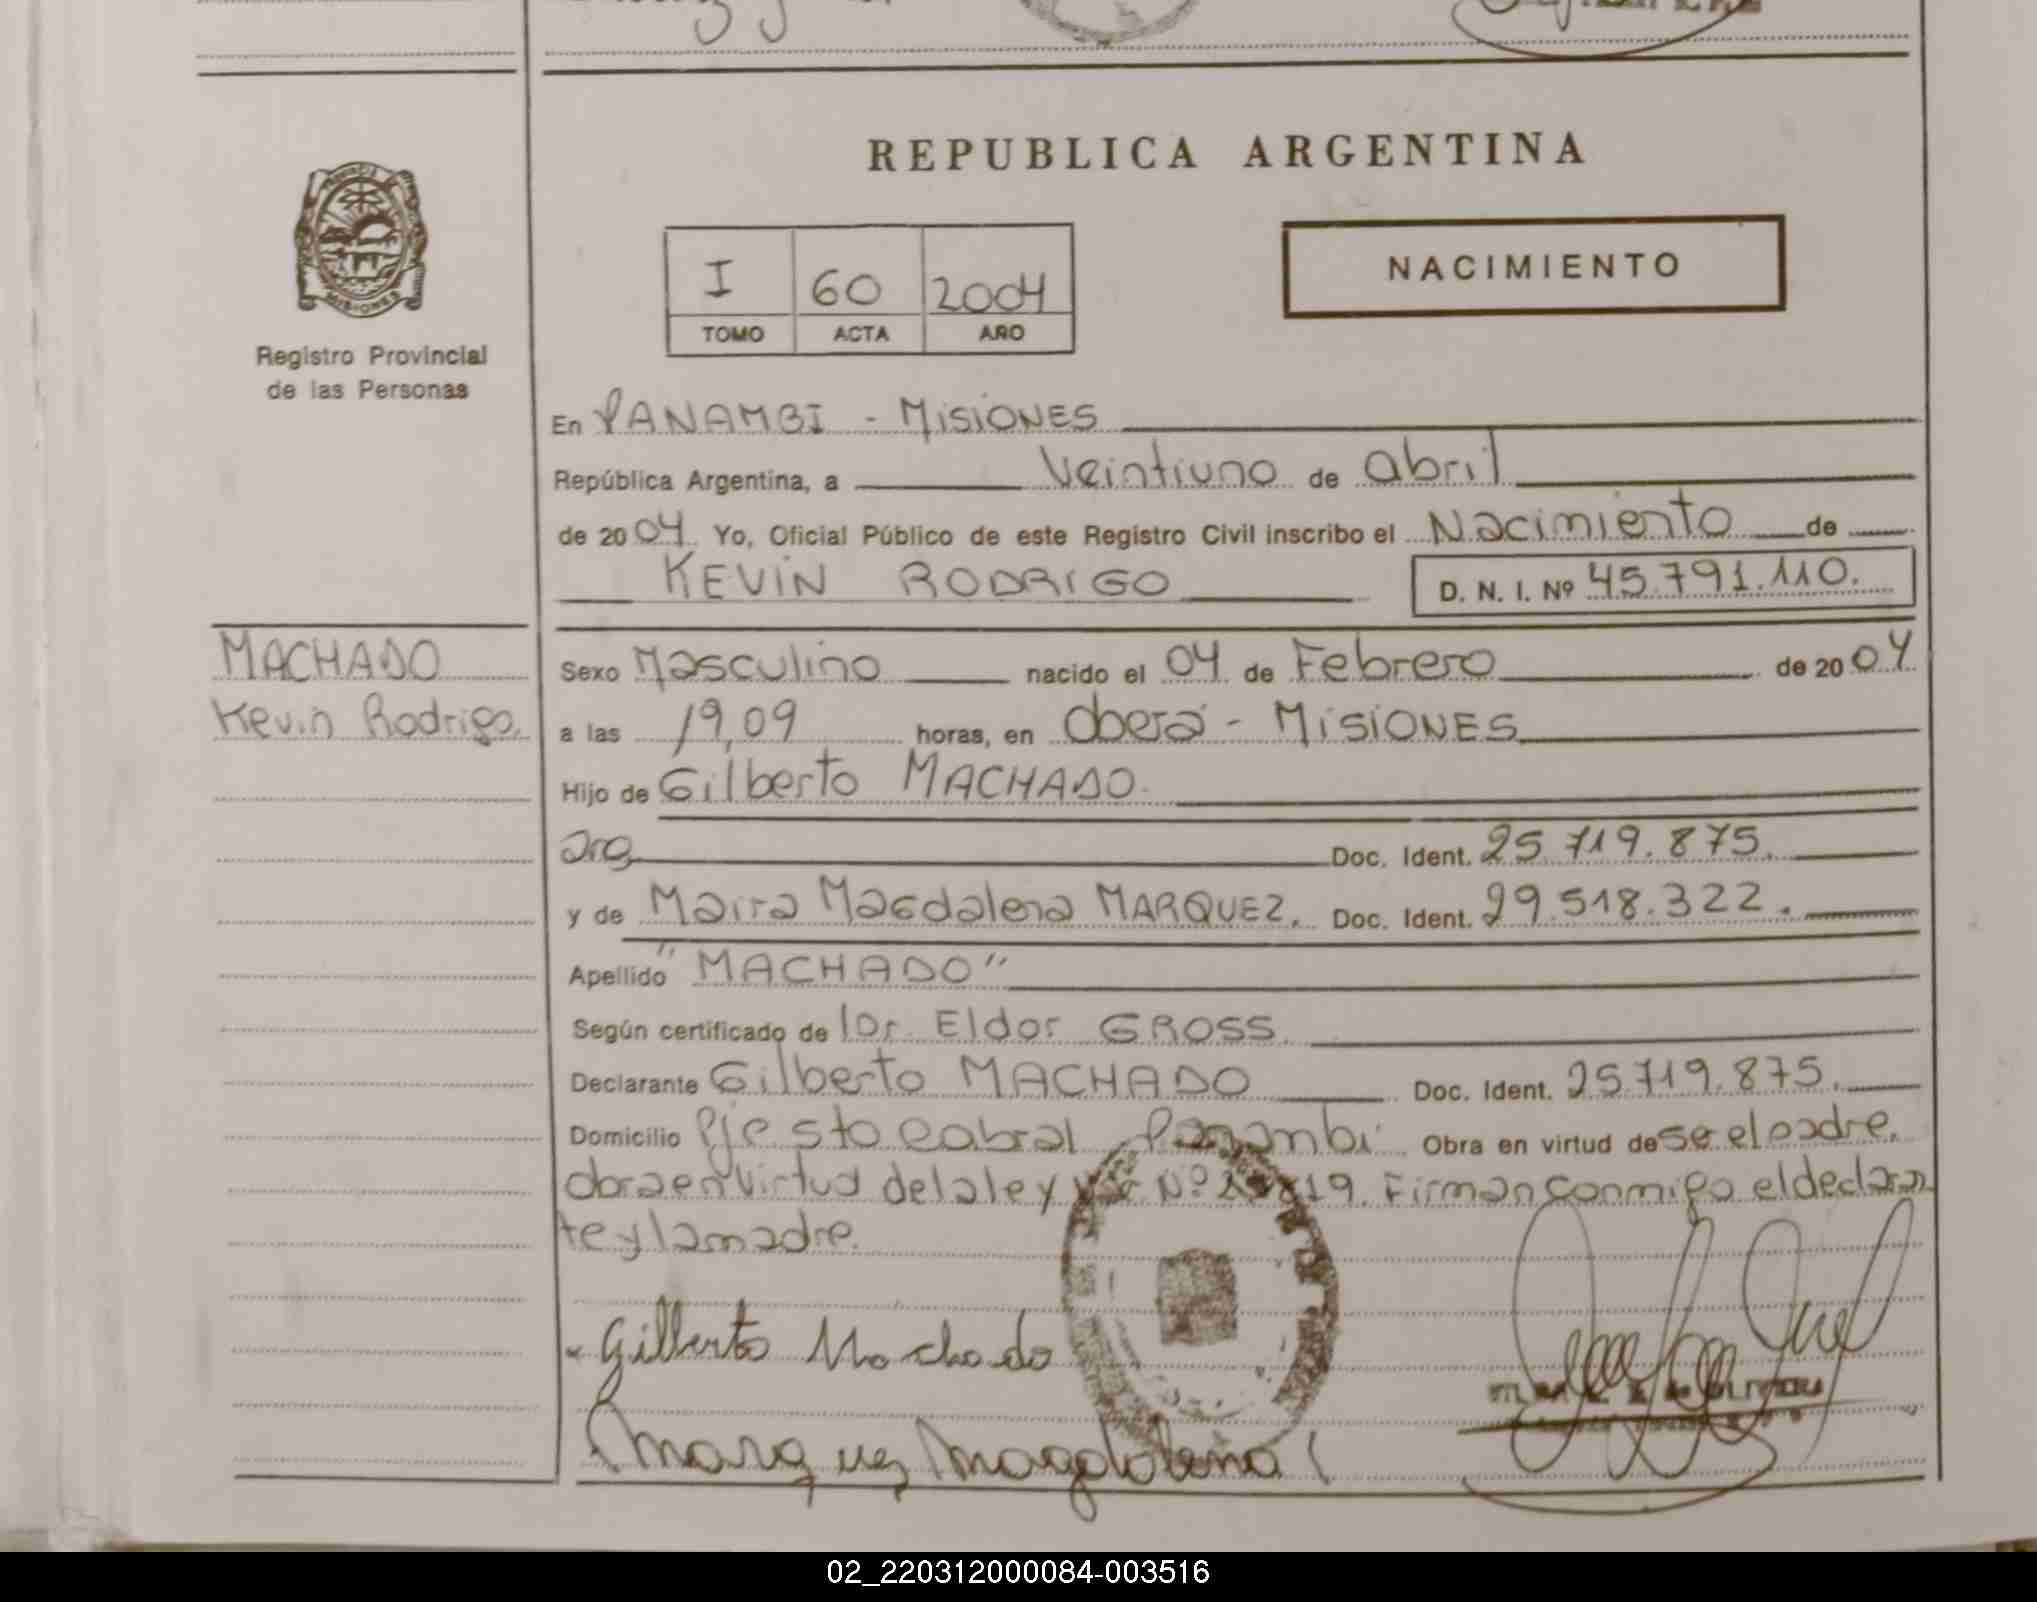 REPUBLICA ARGENTINA
NACIMIENTO
I 60 2004
TOMO ACTA AÑO
MISIONES
Registro Provincial
de las Personas
En PANAMBI - MISIONES
República Argentina, a Veintiuno de abril
de 2004 Yo, Oficial Público de este Registro Civil inscribo el Nacimiento de
KEVIN RODRIGO D. N. I. Nº 45.791.110.
MACHADO
Kevin Rodrigo.
Sexo Masculino nacido el 04 de Febrero de 2004
a las 19,09 horas, en Oberá - MISIONES
Hijo de Gilberto MACHADO.
arg. Doc. Ident. 25.719.875.
y de Maira Magdalena MARQUEZ. Doc. Ident. 29.518.322.
Apellido "MACHADO"
Según certificado de Eldor GROSS.
Declarante Gilberto MACHADO Doc. Ident. 25.719.875.
Domicilio Pje sto cabral Panambi Obra en virtud de se el padre.
obra en virtud de la ley Nº 19. Firman conmigo el declaran
te y la madre.
Gilberto Machado
Marquez Magdalena
02_220312000084-003516